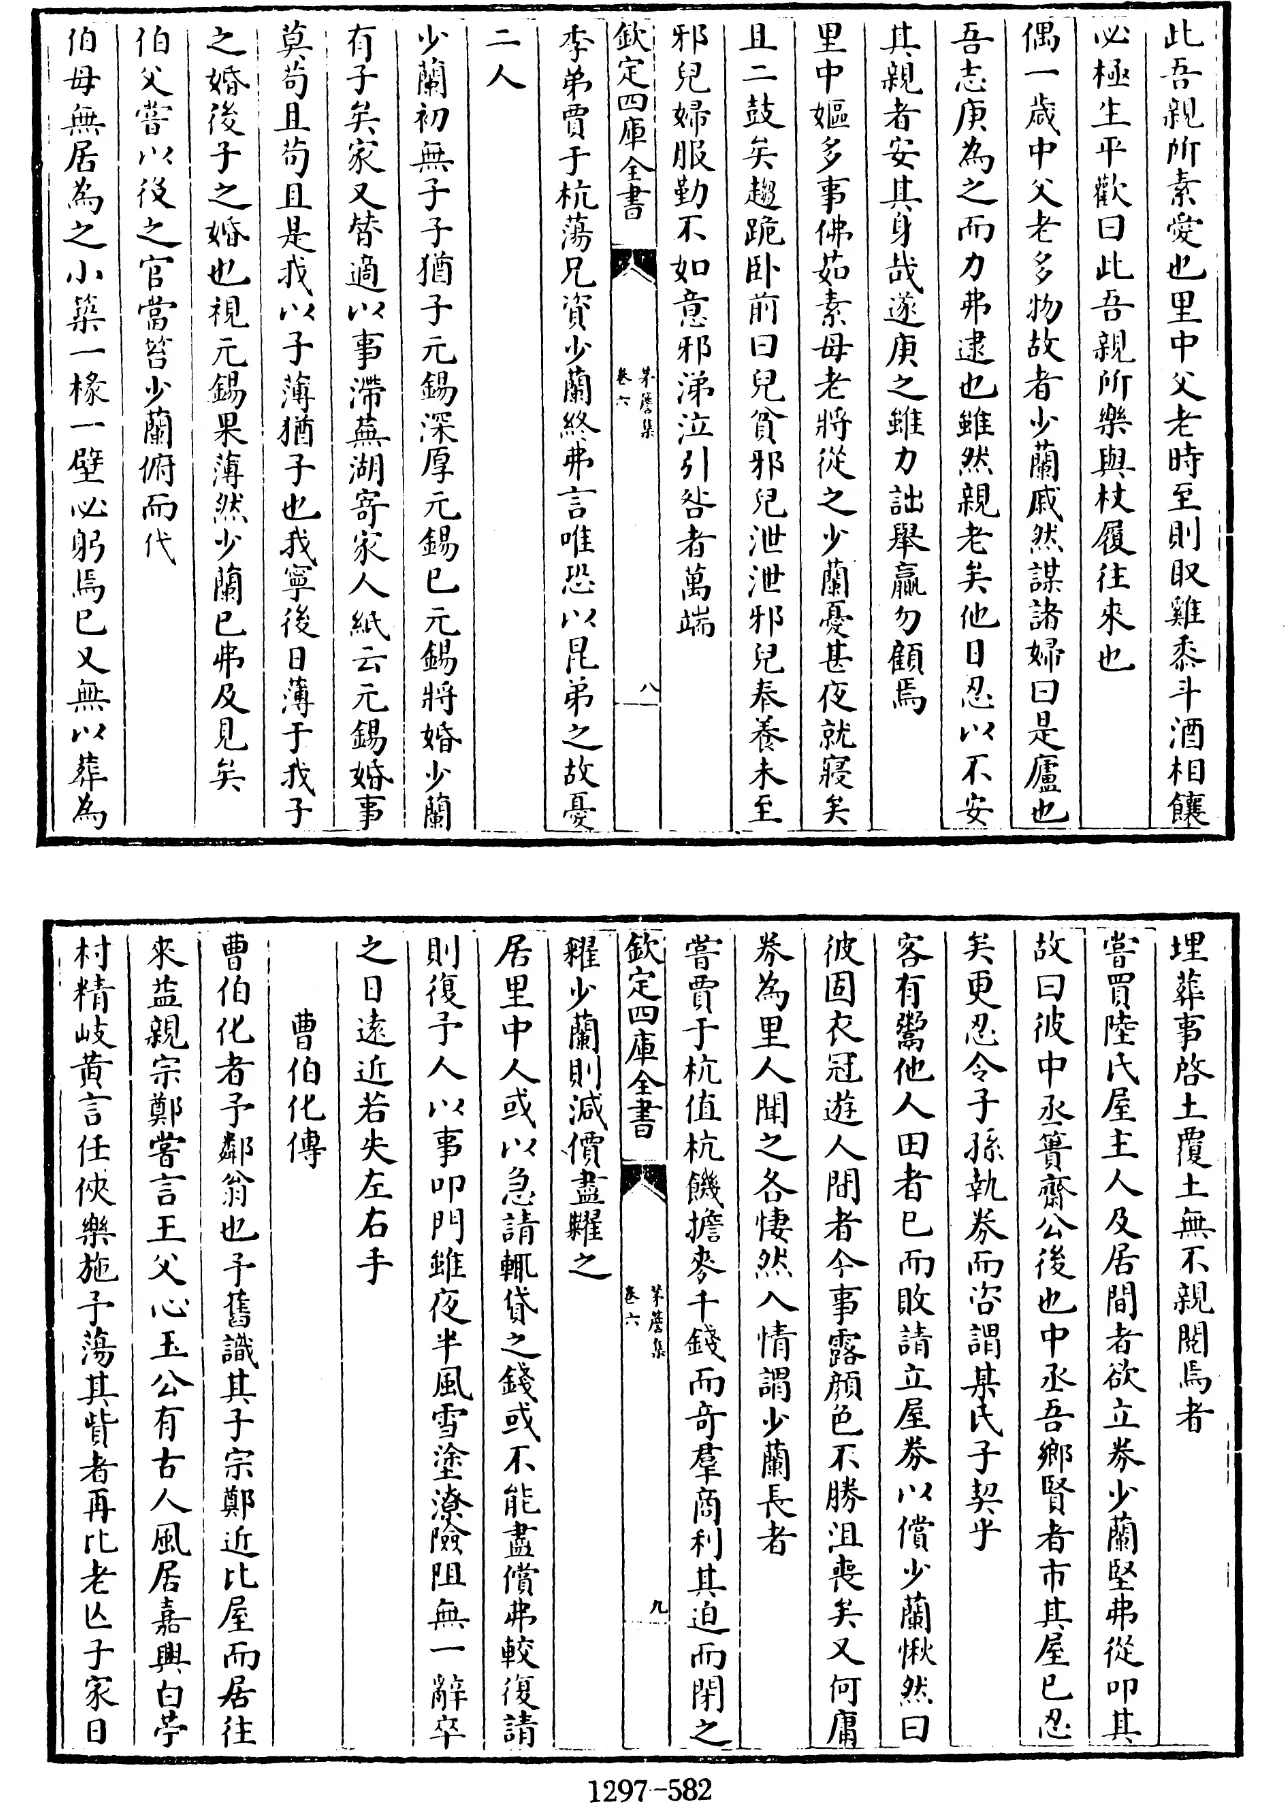 此吾親所素愛也里中父老時至則取雞黍斗酒相饟
必極生平歡曰此吾親所樂與杖履往來也
偶一歲中父老多物故者少蘭戚然謀諸婦曰是廬也
吾志庚為之而力弗逮也雖然親老矣他日忍以不安
其親者安其身哉遂庚之雖力詘舉贏勿顧焉
里中嫗多事佛茹素母老將從之少蘭憂甚夜就寢矣
且二鼓矣趨跪卧前曰兒貧邪兒泄泄邪兒奉養未至
邪兒婦服勤不如意邪涕泣引咎者萬端
欽定四庫全書
茅簷集
卷六
八
季弟賈于杭蕩兄資少蘭終弗言唯恐以昆弟之故憂
二人
少蘭初無子子猶子元錫深厚元錫已元錫將婚少蘭
有子矣家又替適以事滯蕪湖寄家人紙云元錫婚事
莫苟且苟且是我以子薄猶子也我寧後日薄于我子
之婚後子之婚也視元錫果薄然少蘭已弗及見矣
伯父嘗以役之官當笞少蘭俯而代
伯母無居為之小築一椽一壁必躬焉已又無以葬為
埋葬事啓土覆土無不親閱焉者
嘗買陸氏屋主人及居間者欲立券少蘭堅弗從叩其
故曰彼中丞簣齋公後也中丞吾鄉賢者市其屋已忍
矣更忍令子孫執券而咨謂某氏子契乎
客有鬻他人田者已而敗請立屋券以償少蘭愀然曰
彼固衣冠遊人間者今事露顏色不勝沮喪矣又何庸
券為里人聞之各悽然入情謂少蘭長者
嘗賈于杭值杭饑擔麥千錢而奇羣商利其迫而閉之
欽定四庫全書
茅簷集
卷六
九
糶少蘭則減價盡糶之
居里中人或以急請輒貸之錢或不能盡償弗較復請
則復予人以事叩門雖夜半風雪塗潦險阻無一辭卒
之日遠近若失左右手
曹伯化傳
曹伯化者予鄰翁也予舊識其子宗鄭近比屋而居往
來益親宗鄭嘗言王父心玉公有古人風居嘉興白苧
村精岐黃言任俠樂施予蕩其貲者再比老亾子家日
1297-582